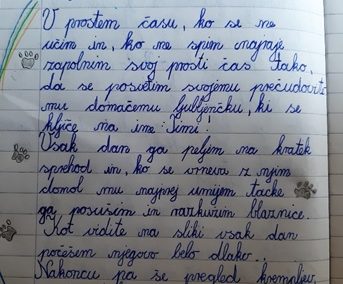 V prostem času, ko se ne
učim in, ko ne spim najraje
zapolnim svoj prosti čas tako,
da se posvetim svojemu prečudovite
mu domačemu ljubljenčku, ki se
kliče na ime Timi.
Vsak dan ga peljem na kratek
sprehod in, ko se vrneva z njim
domov mu najprej umijem tacke
ga posušim in razkužim blaznice.
Kot vidite na sliki vsak dan
počešem njegovo belo dlako..
Nakoncu pa še pregled krempljev,